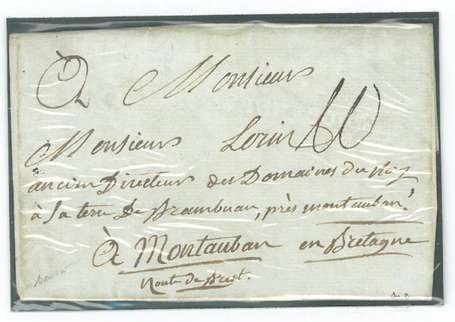 À Monsieur
Monsieur Lorin 10
ancien Directeur des Domaines du Roy
à sa terre De près montauban
À Montauban en Bretagne
Route de Brest.